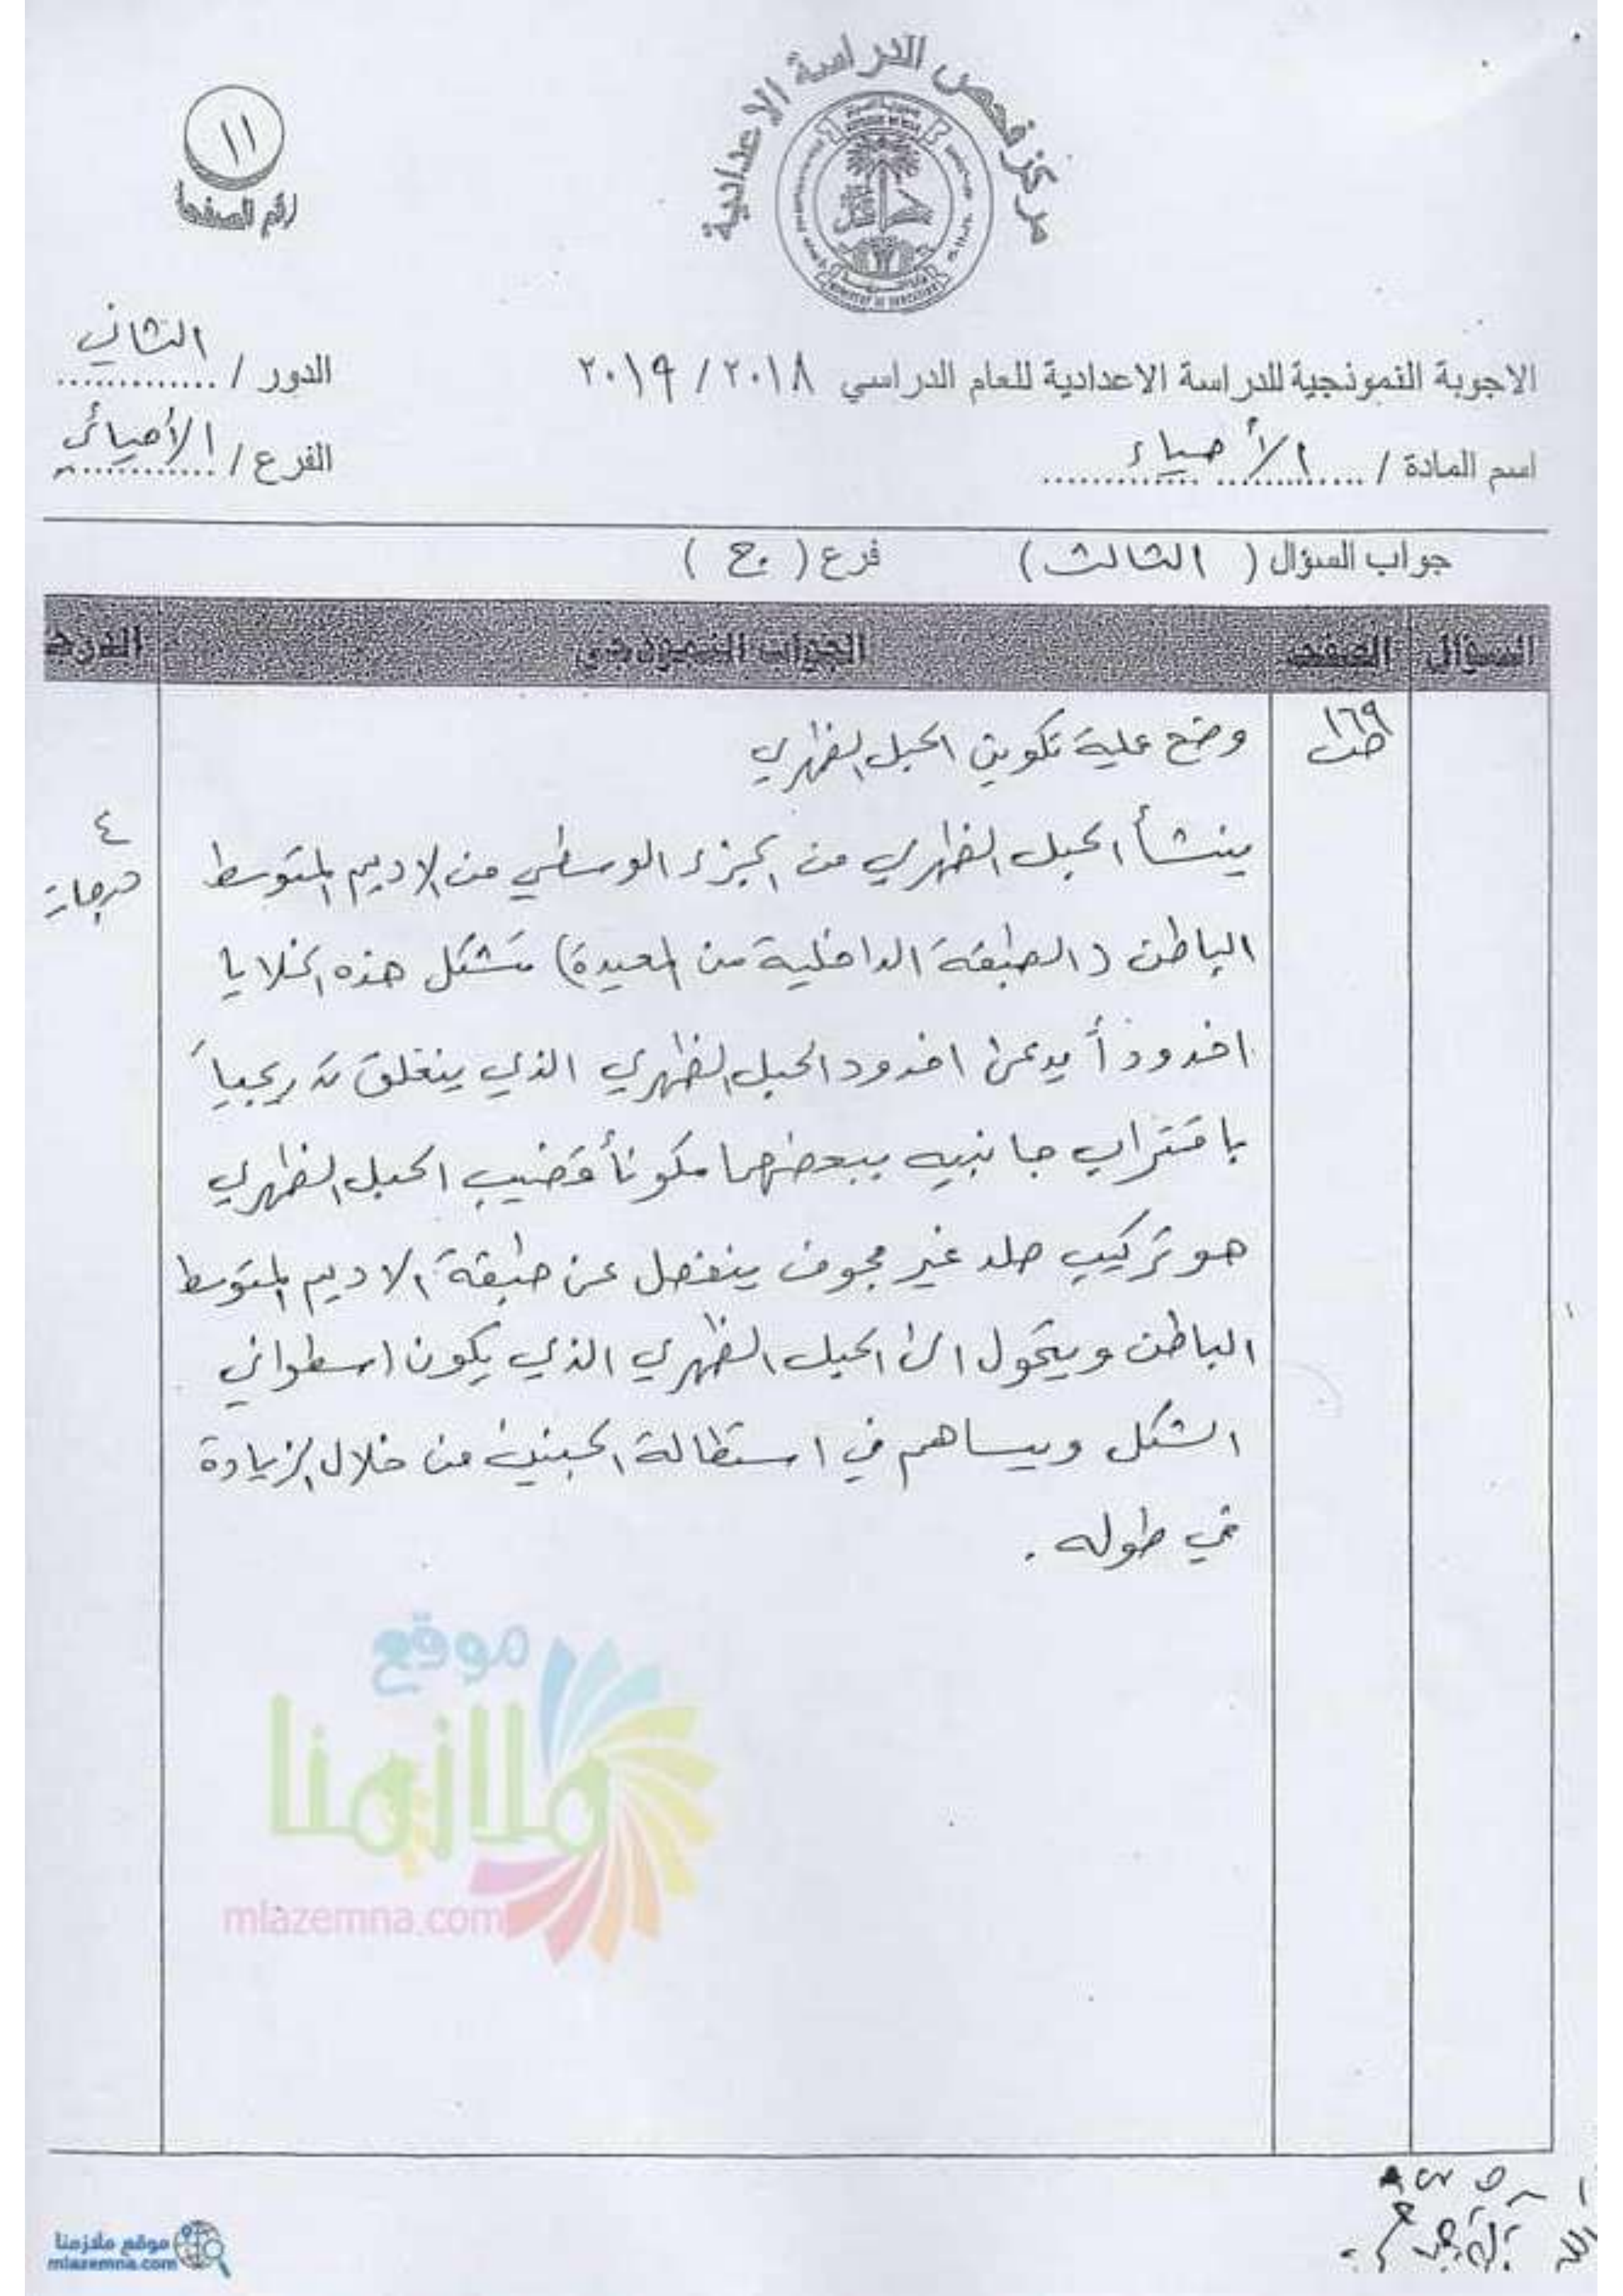 مركز فحص الدراسة الاعدادية
١١
رقم الصفحة
الاجوبة النموذجية للدراسة الاعدادية للعام الدراسي ٢٠١٨ / ٢٠١٩
الدور / الثاني
اسم المادة / الأحياء
الفرع / الأحيائي
جواب السؤال ( الثالث ) فرع ( ج )
السؤال الصفحة الجواب النموذجي الدرجة
ص١٦٩
وضح عملية تكوين الحبل الظهري
٤
درجات
ينشأ الحبل الظهري من الجزء الوسطي من الاديم المتوسط
الباطن (الطبقة الداخلية من المعيدة) تتشكل هذه الخلايا
اخدوداً يدعى اخدود الحبل الظهري الذي ينغلق تدريجياً
باقتراب جانبيه ببعضهما مكوناً قضيب الحبل الظهري
هو تركيب صلد غير مجوف ينفصل عن طبقة الاديم المتوسط
الباطن ويتحول الى الحبل الظهري الذي يكون اسطواني
الشكل ويساهم في استطالة الجنين من خلال الزيادة
في طوله .
موقع
ملازمنا
mlazemna.com
موقع ملازمنا
mlazemna.com